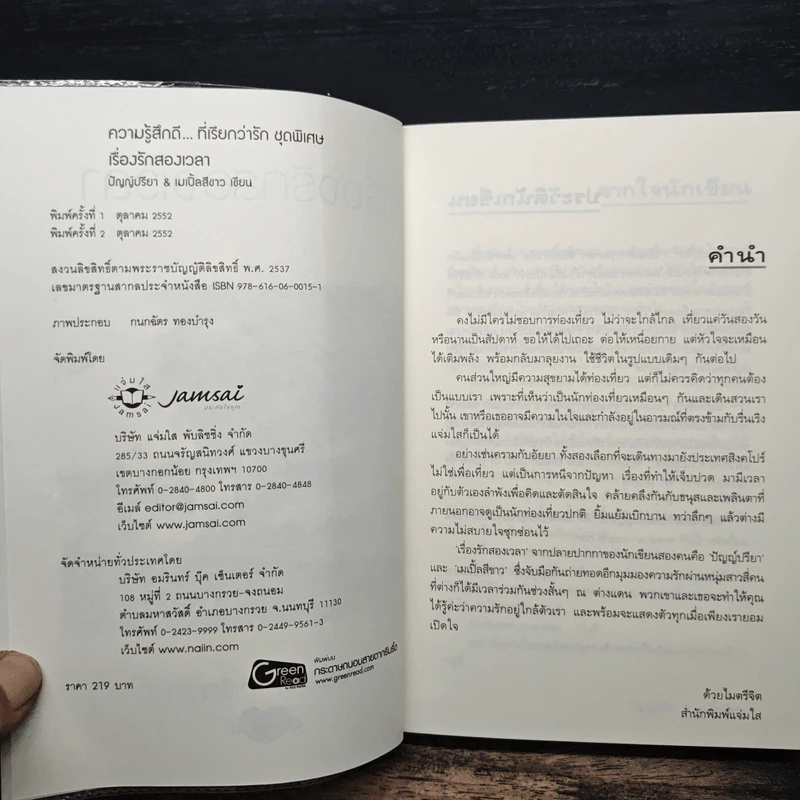 ความรู้สึกดี... ที่เรียกว่ารัก ชุดพิเศษ
เรื่องรักสองเวลา
ปัญญ์ปรียา & เมเปิ้ลสีขาว เขียน
พิมพ์ครั้งที่ 1 ตุลาคม 2552
พิมพ์ครั้งที่ 2 ตุลาคม 2552
สงวนลิขสิทธิ์ตามพระราชบัญญัติลิขสิทธิ์ พ.ศ. 2537
เลขมาตรฐานสากลประจำหนังสือ ISBN 978-616-06-0015-1
ภาพประกอบ กนกฉัตร ทองบำรุง
จัดพิมพ์โดย
แจ่มใส
Jamsai
Jamsai
บริษัท แจ่มใส พับลิชชิ่ง จำกัด
285/33 ถนนจรัญสนิทวงศ์ แขวงบางขุนศรี
เขตบางกอกน้อย กรุงเทพฯ 10700
โทรศัพท์ 0-2840-4800 โทรสาร 0-2840-4848
อีเมล์ editor@jamsai.com
เว็บไซต์ www.jamsai.com
จัดจำหน่ายทั่วประเทศโดย
บริษัท อมรินทร์ บุ๊ค เซ็นเตอร์ จำกัด
108 หมู่ที่ 2 ถนนบางกรวย-จงถนอม
ตำบลมหาสวัสดิ์ อำเภอบางกรวย จ.นนทบุรี 11130
โทรศัพท์ 0-2423-9999 โทรสาร 0-2449-9561-3
เว็บไซต์ www.naiin.com
Green Read
พิมพ์บน
กระดาษถนอมสายตากรีนรี้ด
www.greenread.com
ราคา 219 บาท
คำนำ
คงไม่มีใครไม่ชอบการท่องเที่ยว ไม่ว่าจะใกล้ไกล เที่ยวแค่วันสองวัน
หรือนานเป็นสัปดาห์ ขอให้ได้ไปเถอะ ต่อให้เหนื่อยกาย แต่หัวใจจะเหมือน
ได้เติมพลัง พร้อมกลับมาลุยงาน ใช้ชีวิตในรูปแบบเดิมๆ กันต่อไป
คนส่วนใหญ่มีความสุขยามได้ท่องเที่ยว แต่ก็ไม่ควรคิดว่าทุกคนต้อง
เป็นแบบเรา เพราะที่เห็นว่าเป็นนักท่องเที่ยวเหมือนๆ กันและเดินสวนเรา
ไปนั้น เขาหรือเธออาจมีความในใจและกำลังอยู่ในอารมณ์ที่ตรงข้ามกับรื่นเริง
แจ่มใสก็เป็นได้
อย่างเช่นครามกับอัยยา ทั้งสองเลือกที่จะเดินทางมายังประเทศสิงคโปร์
ไม่ใช่เพื่อเที่ยว แต่เป็นการหนีจากปัญหา เรื่องที่ทำให้เจ็บปวด มามีเวลา
อยู่กับตัวเองลำพังเพื่อคิดและตัดสินใจ คล้ายคลึงกันกับธนุสและเพลินตาที่
ภายนอกอาจดูเป็นนักท่องเที่ยวปกติ ยิ้มแย้มเบิกบาน ทว่าลึกๆ แล้วต่างมี
ความไม่สบายใจซุกซ่อนไว้
'เรื่องรักสองเวลา' จากปลายปากกาของนักเขียนสองคนคือ 'ปัญญ์ปรียา'
และ 'เมเปิ้ลสีขาว' ซึ่งจับมือกันถ่ายทอดอีกมุมมองความรักผ่านหนุ่มสาวสี่คน
ที่ต่างก็ได้มีเวลาร่วมกันช่วงสั้นๆ ณ ต่างแดน พวกเขาและเธอจะทำให้คุณ
ได้รู้ค่ะว่าความรักอยู่ใกล้ตัวเรา และพร้อมจะแสดงตัวทุกเมื่อเพียงเรายอม
เปิดใจ
ด้วยไมตรีจิต
สำนักพิมพ์แจ่มใส